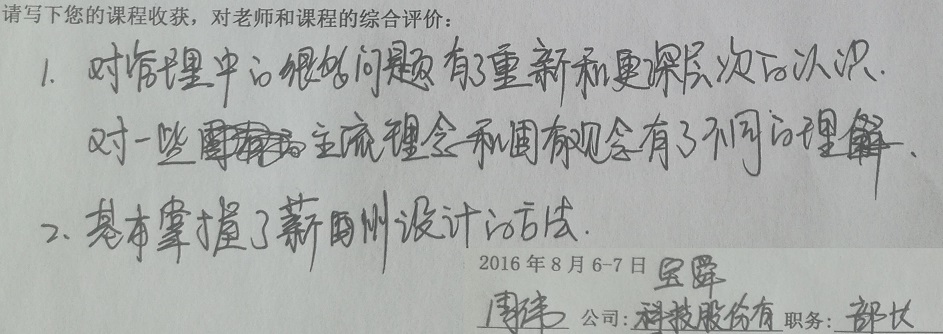 请写下您的课程收获，对老师和课程的综合评价：
1. 对管理中的很多问题有了重新和更深层次的认识.
对一些主流理念和固有观念有了不同的理解.
2. 基本掌握了薪酬设计的方法.
2016年8月6-7日 宝舜
周伟 公司: 科技股份有 职务: 部长